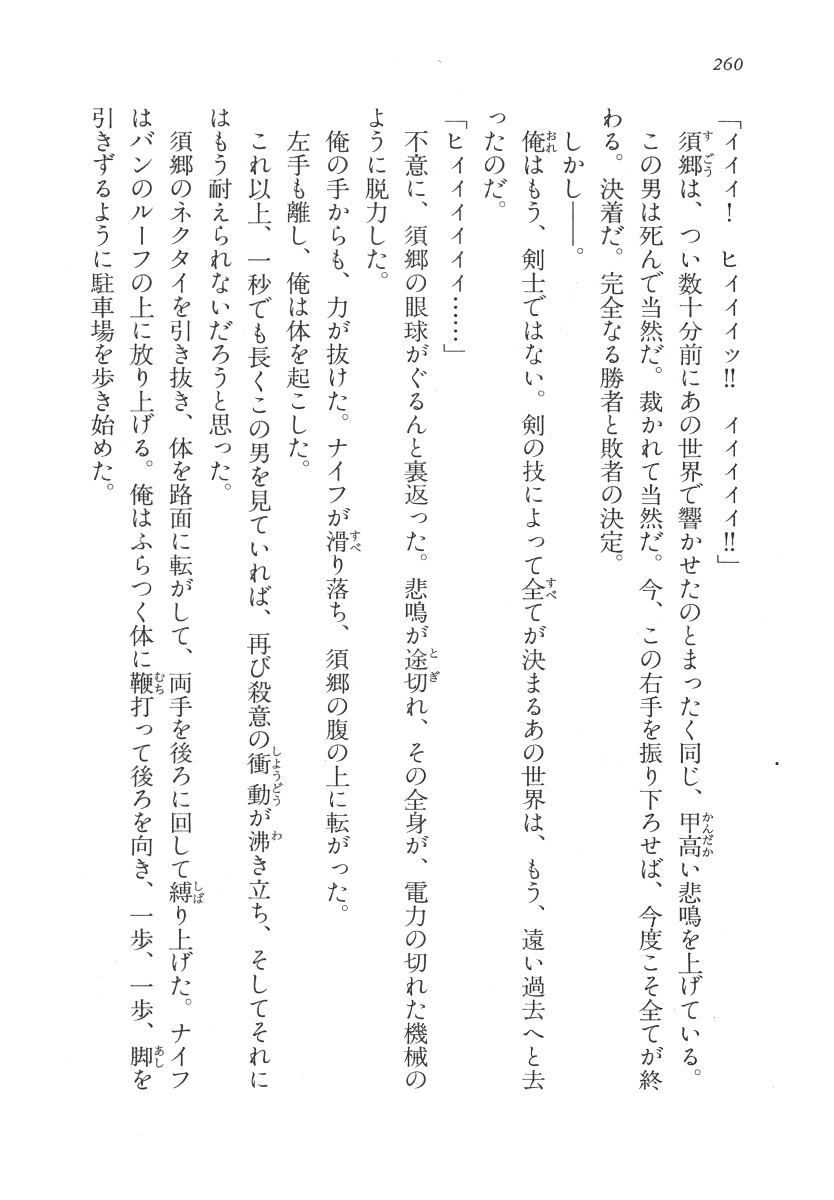 260
「イイイ！　ヒイイイッ!!　イイイイイ!!」
須郷は、つい数十分前にあの世界で響かせたのとまったく同じ、甲高い悲鳴を上げている。
この男は死んで当然だ。裁かれて当然だ。今、この右手を振り下ろせば、今度こそ全てが終
わる。決着だ。完全なる勝者と敗者の決定。
しかし――。
俺はもう、剣士ではない。剣の技によって全てが決まるあの世界は、もう、遠い過去へと去
ったのだ。
「ヒィイイイイイ……」
不意に、須郷の眼球がぐるんと裏返った。悲鳴が途切れ、その全身が、電力の切れた機械の
ように脱力した。
俺の手からも、力が抜けた。ナイフが滑り落ち、須郷の腹の上に転がった。
左手も離し、俺は体を起こした。
これ以上、一秒でも長くこの男を見ていれば、再び殺意の衝動が沸き立ち、そしてそれに
はもう耐えられないだろうと思った。
須郷のネクタイを引き抜き、体を路面に転がして、両手を後ろに回して縛り上げた。ナイフ
はバンのルーフの上に放り上げる。俺はふらつく体に鞭打って後ろを向き、一歩、一歩、脚を
引きずるように駐車場を歩き始めた。